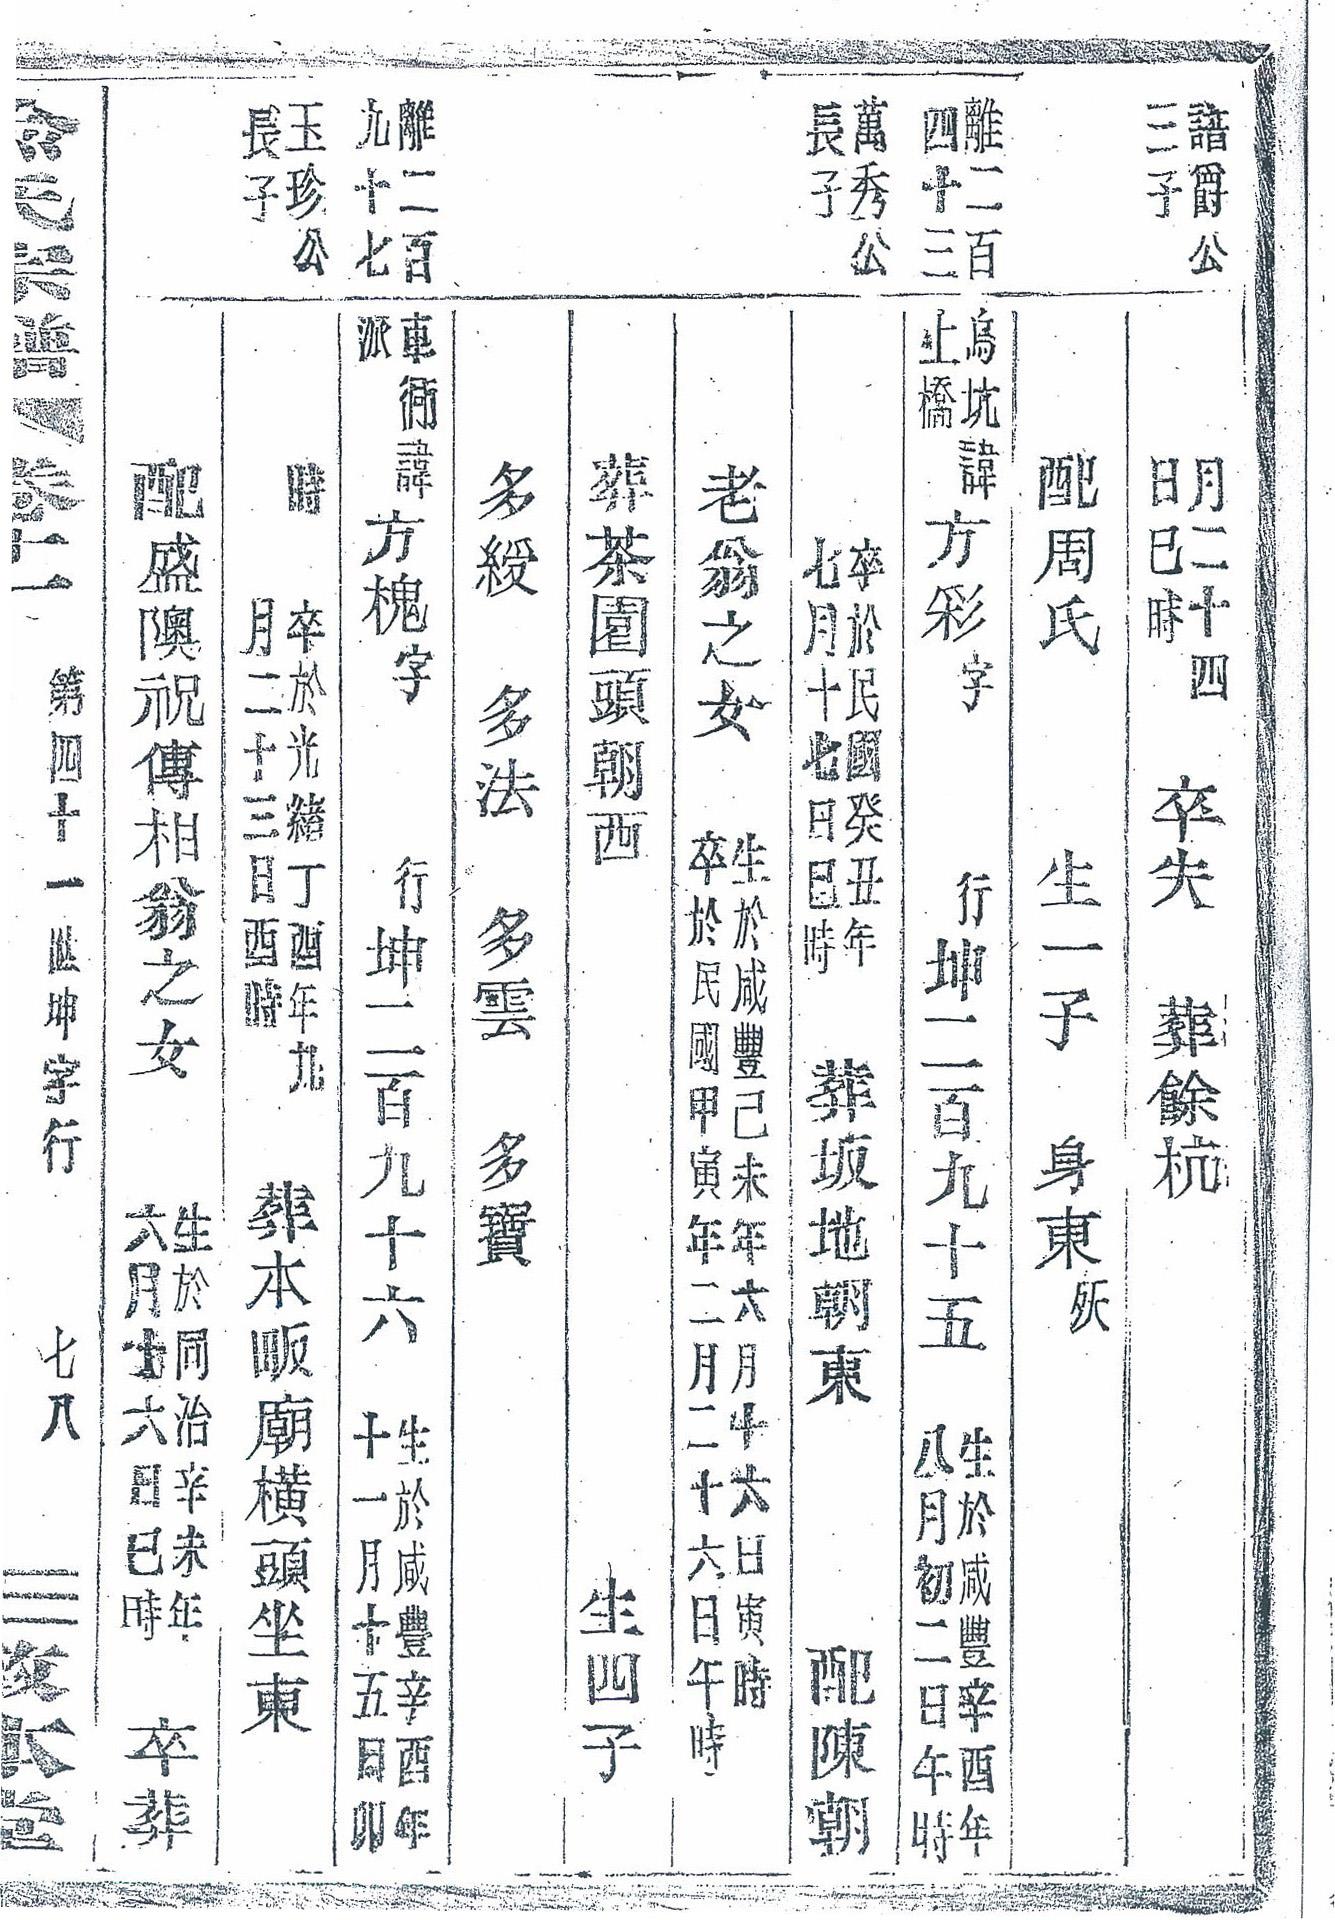 諳爵公
三子
月二十四
日巳時
卒失
葬餘杭
配周氏
生一子
身東
殀
離二百
四十三
烏坑
上橋
諱方彩字
行坤二百九十五
生於咸豐辛酉年
八月初二日午時
萬秀公
長子
卒於民國癸丑年
七月十七日巳時
葬坂地朝東
配陳朝
老翁之女
生於咸豐己未年六月十六日寅時
卒於民國甲寅年二月二十六日午時
葬茶園頭朝西
生四子
多綬
多法
多雲
多寶
離二百
九十七
車衕
派
諱方槐字
行坤二百九十六
生於咸豐辛酉年
十一月十五日卯
玉珍公
長子
時
卒於光緒丁酉年九
月二十三日酉時
葬本畈廟橫頭坐東
配盛隩祝傳相翁之女
生於同治辛未年
六月廿六日巳時
卒葬
氏宗譜
卷二
第四十一世坤字行
七八
敦本堂